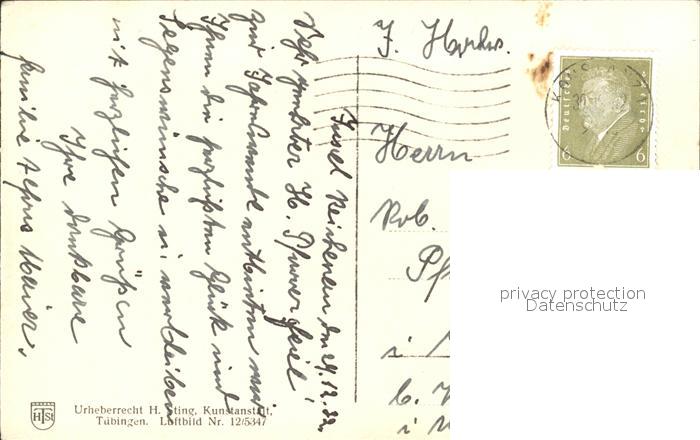 Insel Reichenau den 29.12.32.
Sehr geehrter H. Pfarrer Keil!
zur Jahreswende entbieten wir
Ihnen die herzlichsten Glück und
Segenswünsche u. verbleiben
mit herzlichen Grüßen
Ihre dankbare
Familie Maier.
Herrn
Rob.
Pf
i
b.
i
Deutsches Reich
6 6
privacy protection
Datenschutz
HSt
Urheberrecht H. Sting, Kunstanstalt,
Tübingen. Luftbild Nr. 12/5347